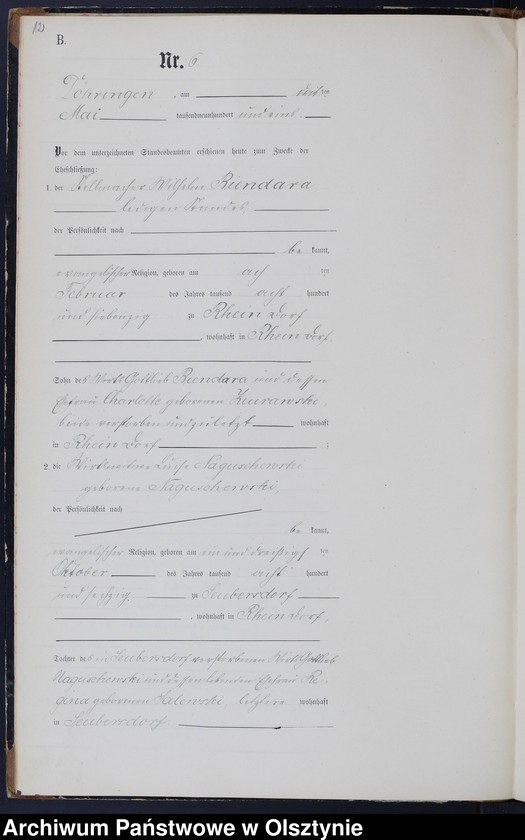 12
B.
Nr. 6
Döhringen, am ten
Mai tausendneunhundert und eins
Vor dem unterzeichneten Standesbeamten erschienen heute zum Zwecke der
Eheschließung:
1. der Stellmacher Wilhelm Biendara
ledigen Standes,
der Persönlichkeit nach
be kannt,
evangelischer Religion, geboren am ten
Februar des Jahres tausend acht hundert
und siebenzig zu Rhein Dorf
, wohnhaft in Rhein Dorf
Sohn des Wirts Gottlieb Biendara und dessen
Ehefrau Charlotte geborenen Zurawski
beide verstorben und zuletzt wohnhaft
in Rhein Dorf ;
2. die Luise Naguschewski
geborene Naguschewski,
der Persönlichkeit nach
be kannt,
evangelischer Religion, geboren am ein und dreißigs ten
Oktober des Jahres tausend acht hundert
und sechzig zu Seubersdorf
, wohnhaft in Rhein Dorf,
Tochter des in Seubersdorf verstorbenen Wirts Gottlieb
Naguschewski und dessen lebenden Ehefrau Re-
gina geborenen Salewski, letztere wohnhaft
in Seubersdorf
Archiwum Państwowe w Olsztynie